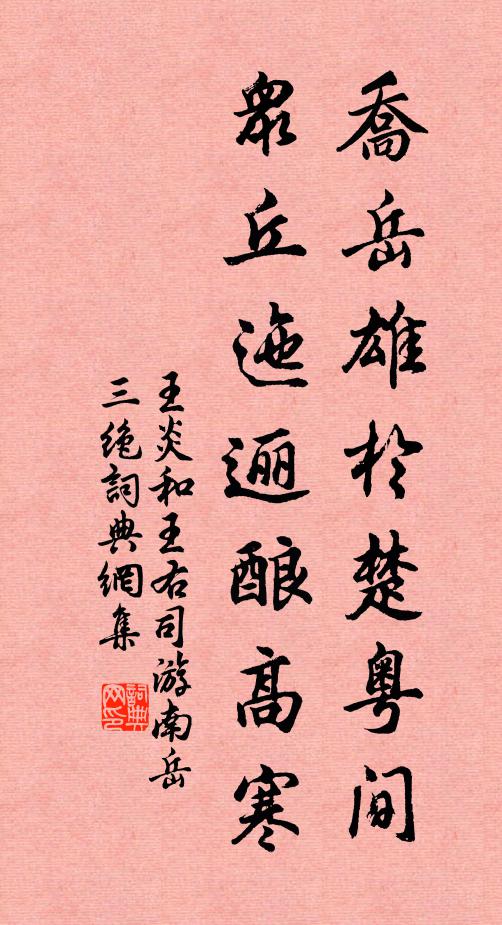 喬岳雄於楚粤間
眾丘迤逦酿高寒
王炎和王右司游南岳
三绝詞典網集
詞典网印